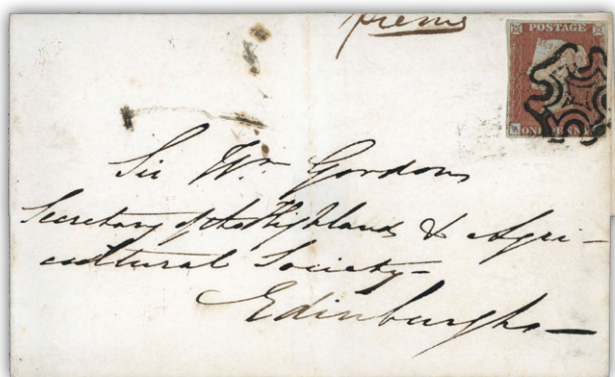 POSTAGE
ONE PENNY
Sir Wm. Gordon
Secretary of the Highland & Agri-
cultural Society-
Edinburgh-